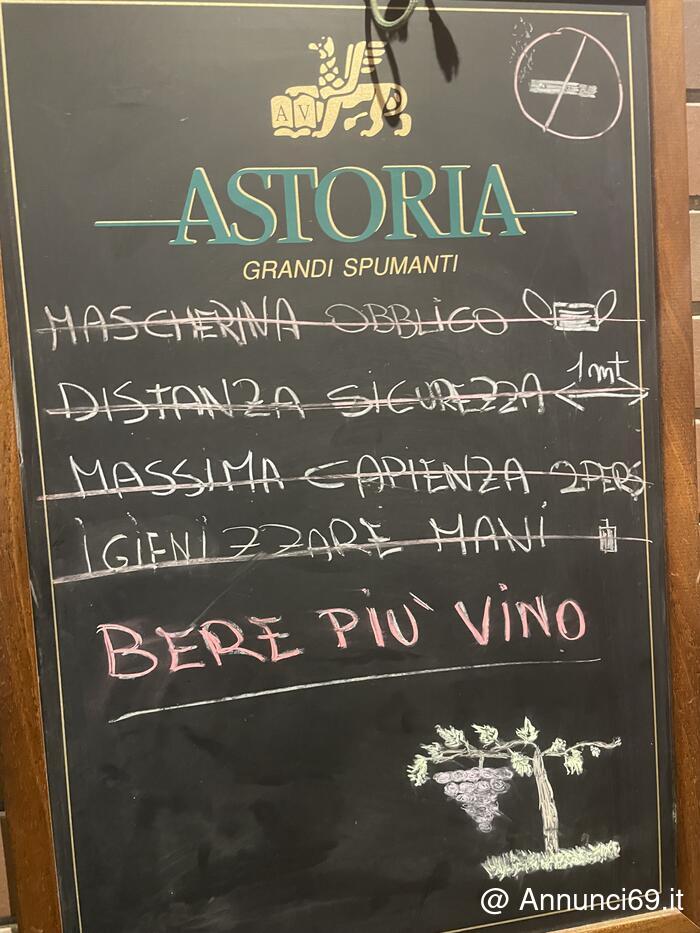 A V
ASTORIA
GRANDI SPUMANTI
MASCHERINA OBBLIGO
1mt
DISTANZA SICUREZZA
MASSIMA CAPIENZA 2PERS
IGIENIZZARE MANI
BERE PIU' VINO
@ Annunci69.it